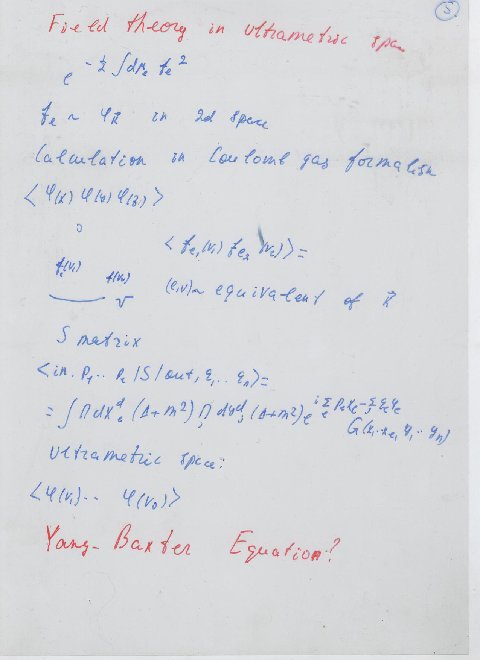 5.
Field theory in ultrametric space
e^{-½ ∫dμ_e f_e²}
f_e ~ φ_k in 2d space
Calculation in Coulomb gas formalism
<φ(x) φ(y) φ(z)>
<f_{e1}(v_1) f_{e2}(v_2)> =
(e,v) ~ equivalent of k⃗
S matrix
<in. p_1 .. p_e |S| out, q_1 .. q_n> =
= ∫ Π dx_e^d (Δ+m²) Π dy_j^d (Δ+m²) e
G(x_1 .. x_e, y_1 .. y_n)
ultrametric space:
<φ(v_1) .. φ(v_n)>
Yang-Baxter Equation?